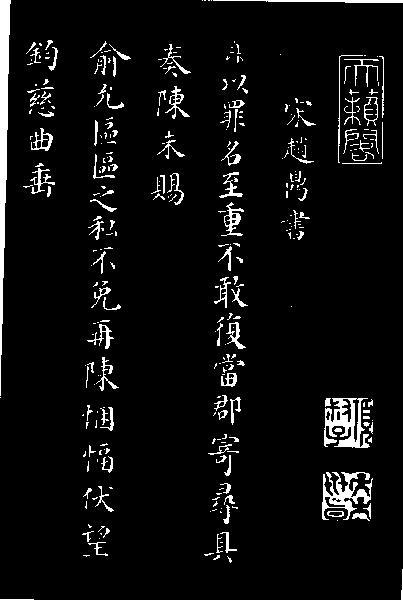 天籟閣
宋趙鼎書
鼎以罪名至重不敢復當郡寄尋具
奏陳未賜
俞允區區之私不免再陳悃愊伏望
鈞慈曲垂